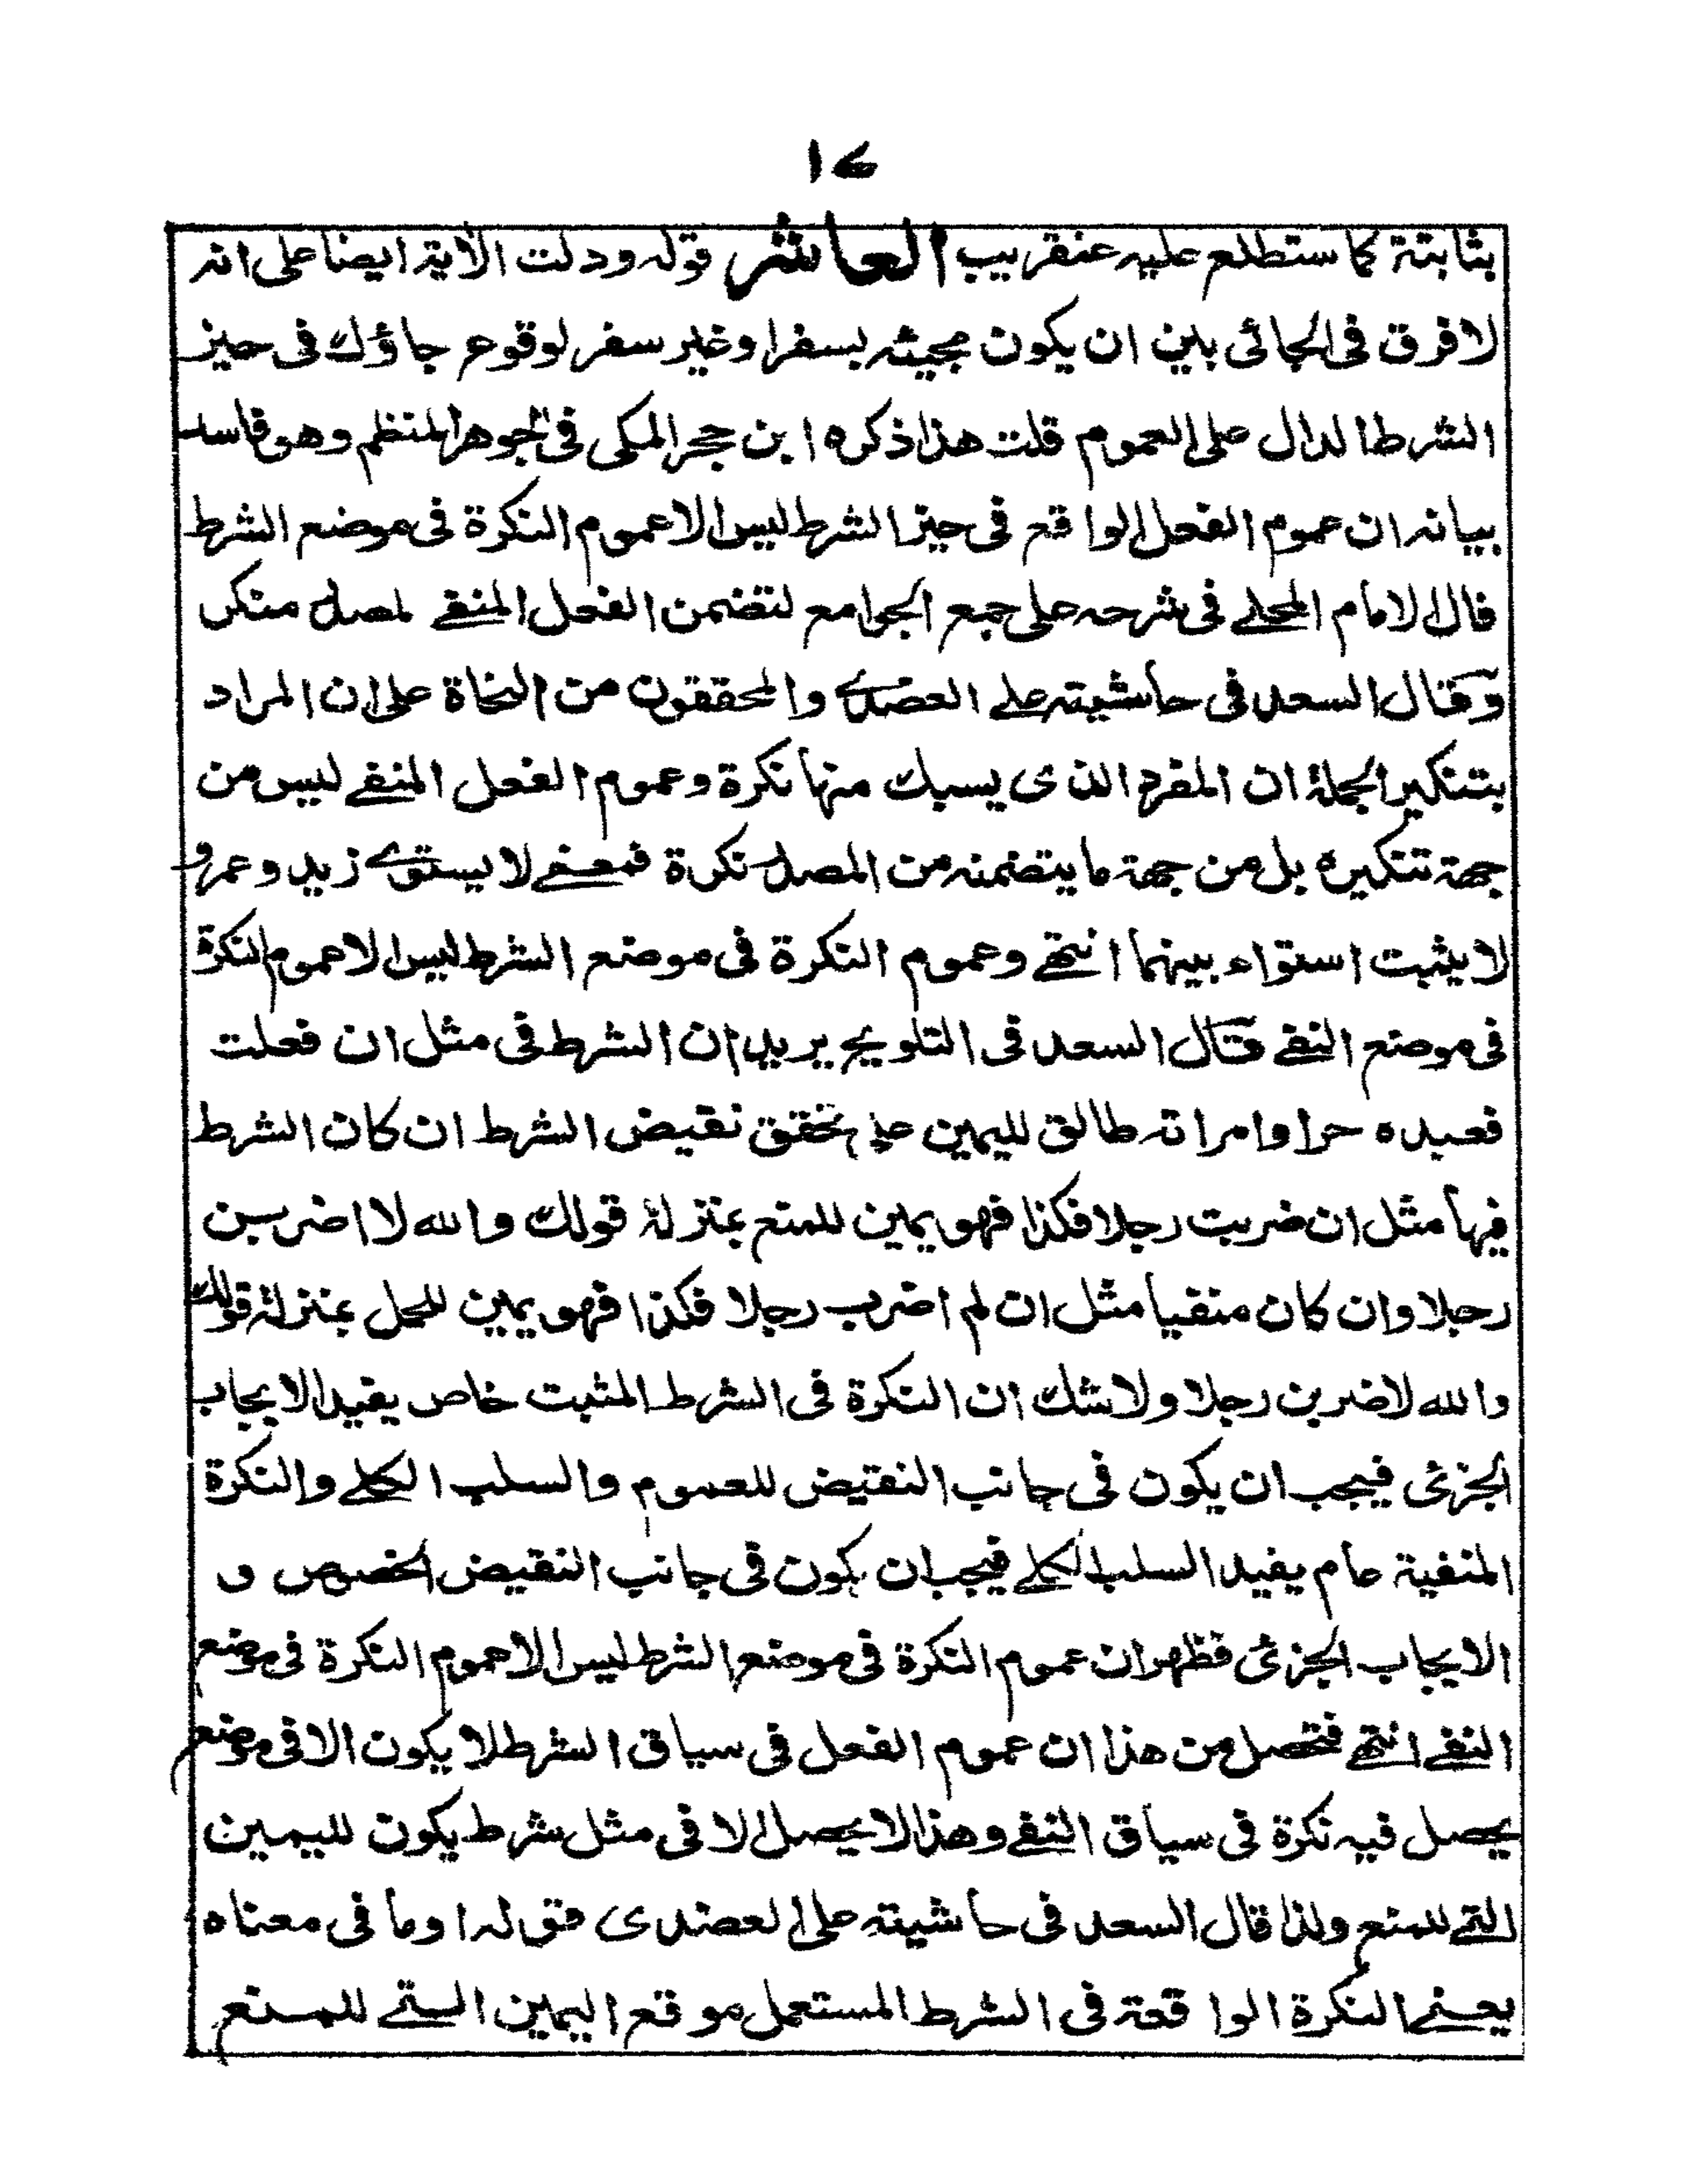 ١٤
بثابتة كما ستطلع عليه عنقريب العاشر قوله ودلت الآية ايضا على انه
لا فرق فى الجائى بين ان يكون مجيئه بسفر او غير سفر لوقوع جاؤك فى حيز
الشرط الدال على العموم قلت هذا ذكره ابن حجر المكى فى الجوهر المنظم وهو فاسد
بيانه ان عموم الفعل الواقع فى حيز الشرط ليس الا عموم النكرة فى موضع الشرط
قال الامام المحلے فى شرحه على جمع الجوامع لتضمن الفعل المنفے لمصدر منكر
وقال السعد فى حاشيته علے العضدے والمحققون من النحاة على ان المراد
بتنكير الجملة ان المفرد الذى يسبك منها نكرة وعموم الفعل المنفے ليس من
جهة تنكيره بل من جهة ما يتضمنه من المصدر نكرة فمعنے لا يستوے زيد وعمرو
لا يثبت استواء بينهما انتهے وعموم النكرة فى موضع الشرط ليس الا عموم النكرة
فى موضع النفے قال السعد فى التلويح يريد ان الشرط فى مثل ان فعلت
فعبده حر او امراته طالق لليمين على تحقق نقيض الشرط ان كان الشرط
فيها مثل ان ضربت رجلا فكذا فهو يمين للمنع بمنزلة قولك والله لا اضربن
رجلا وان كان منفيا مثل ان لم اضرب رجلا فكذا فهو يمين للحمل بمنزلة قولك
والله لاضربن رجلا ولا شك ان النكرة فى الشرط المثبت خاص يفيد الايجاب
الجزئى فيجب ان يكون فى جانب النقيض للعموم والسلب الكلے والنكرة
المنفية عام يفيد السلب الكلے فيجب ان يكون فى جانب النقيض الخصوص و
الايجاب الجزئى فظهر ان عموم النكرة فى موضع الشرط ليس الا عموم النكرة فى موضع
النفے انتهے فتحصل من هذا ان عموم الفعل فى سياق الشرط لا يكون الا فى موضع
يحصل فيه نكرة فى سياق النفے وهذا لا يحصل الا فى مثل شرط يكون لليمين
التے للمنع ولذا قال السعد فى حاشيته على العضدى قوله او ما فى معناه
يعنے النكرة الواقعة فى الشرط المستعمل موقع اليمين التے للمنع